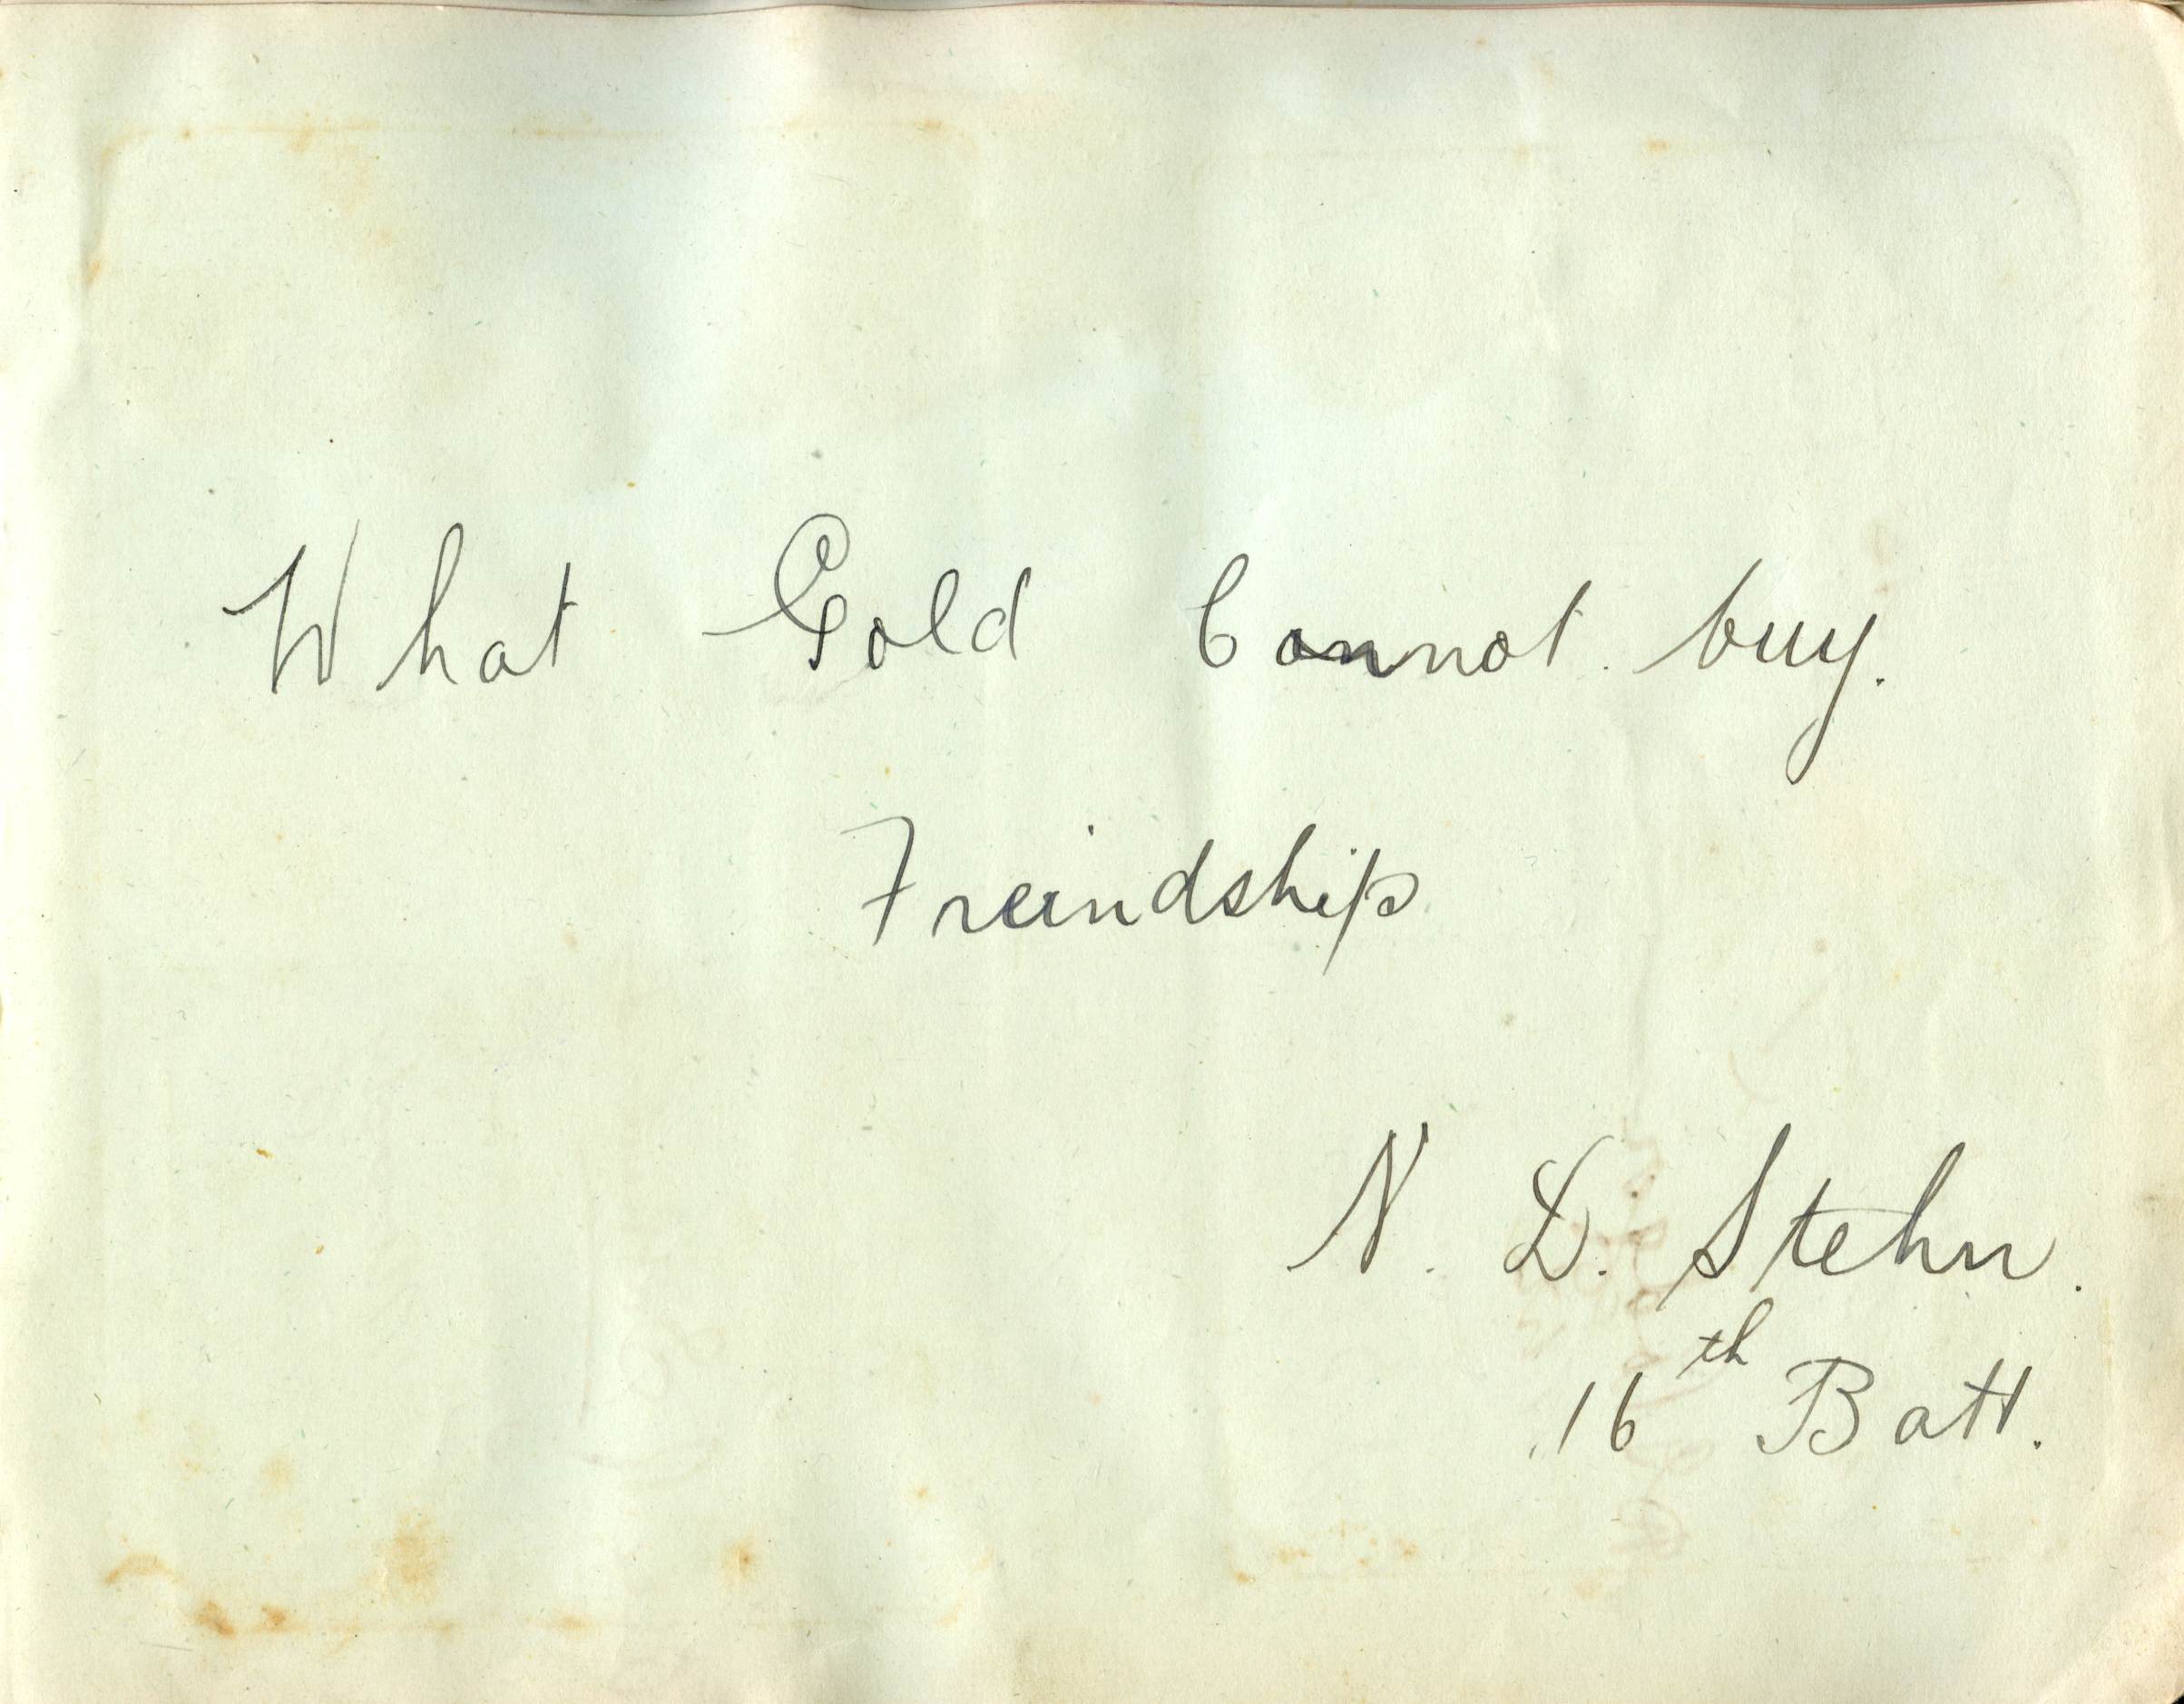 What Gold Cannot buy.
Freindship
N. D. Stehn.
16th Batt.